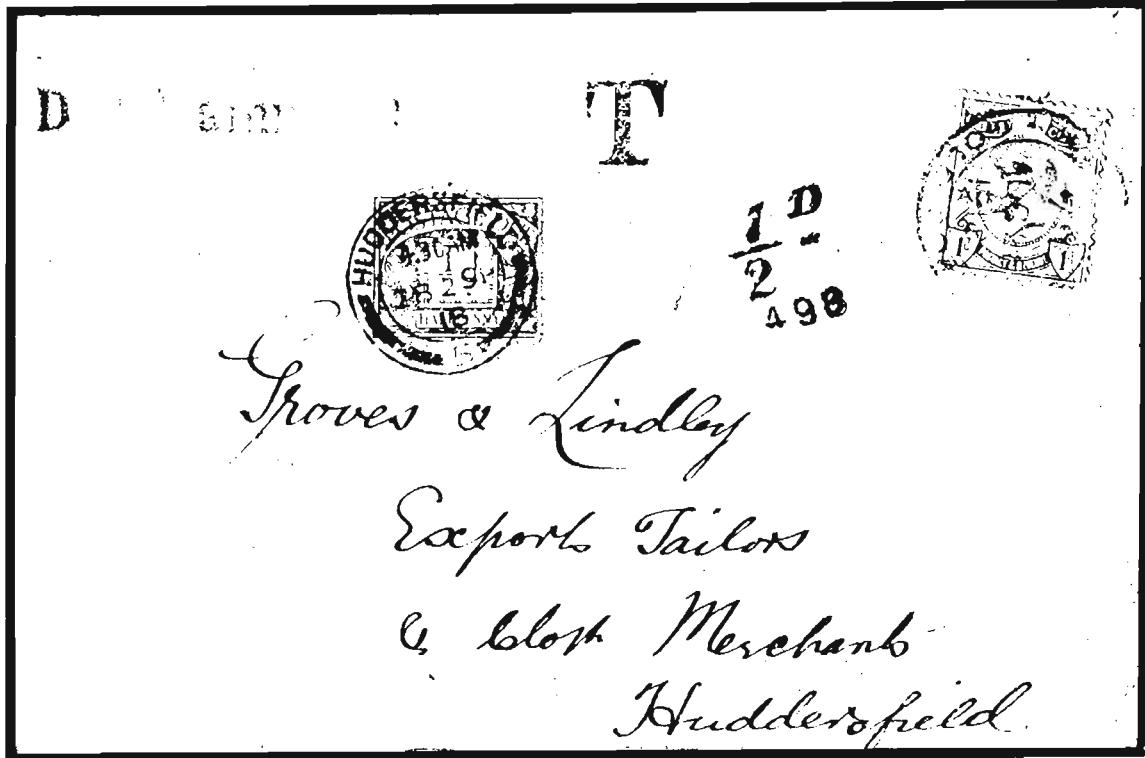 D
T
1/2 D
498
HUDDERSFIELD
4.30 PM
18
29
18
1 1
Groves & Lindley
Exports Tailors
& Cloth Merchants
Huddersfield.